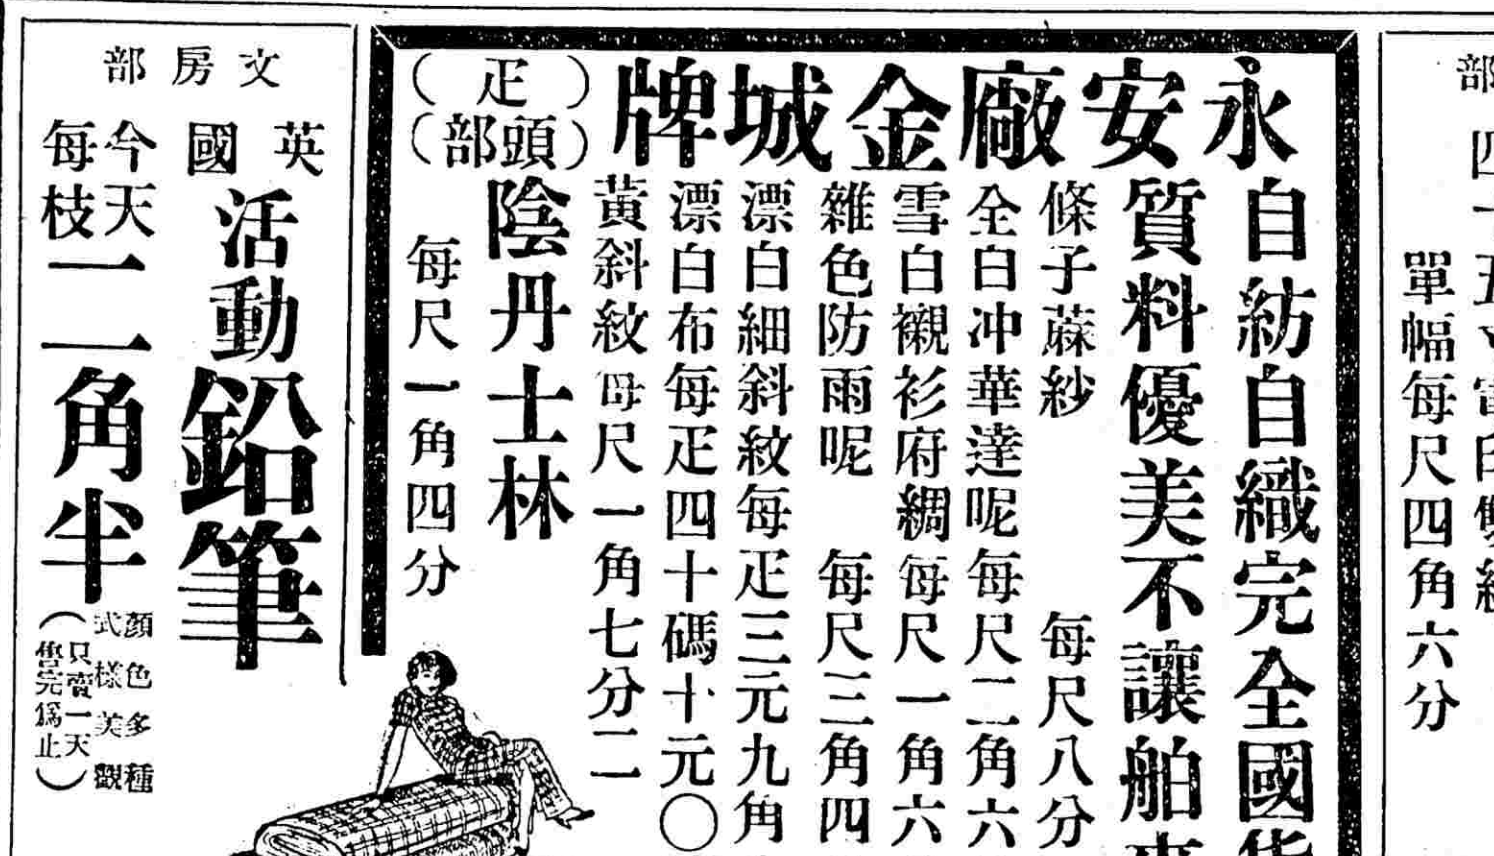 部
四十五寸
單幅每尺四角六分
永安廠金城牌
(疋頭部)
自紡自織完全國貨
質料優美不讓舶來
條子蔴紗 每尺八分
全白冲華達呢每尺二角六
雪白襯衫府綢每尺一角六
雜色防雨呢 每尺三角四
漂白細斜紋每疋三元九角
漂白布每疋四十碼十元〇
黃斜紋每尺一角七分二
陰丹士林
每尺一角四分
文房部
英國
活動鉛筆
今天每枝一角半
顏色多種
式樣美觀
(只賣一天
售完為止)